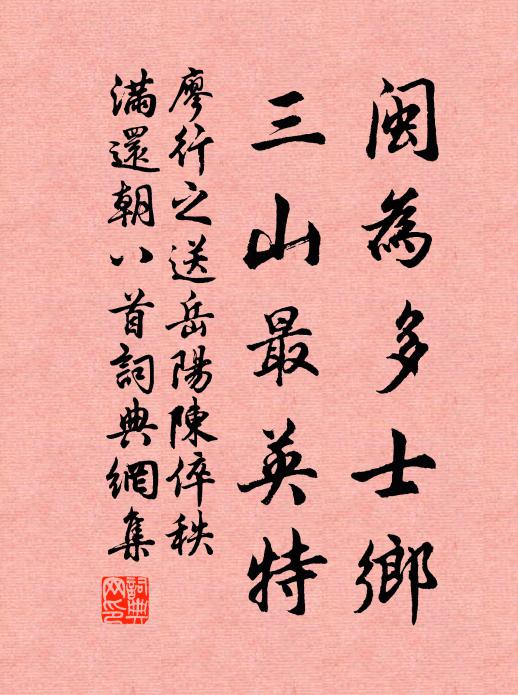 閩為多士鄉
三山最英特
廖行之送岳陽陳倅秩
滿還朝八首詞典網集